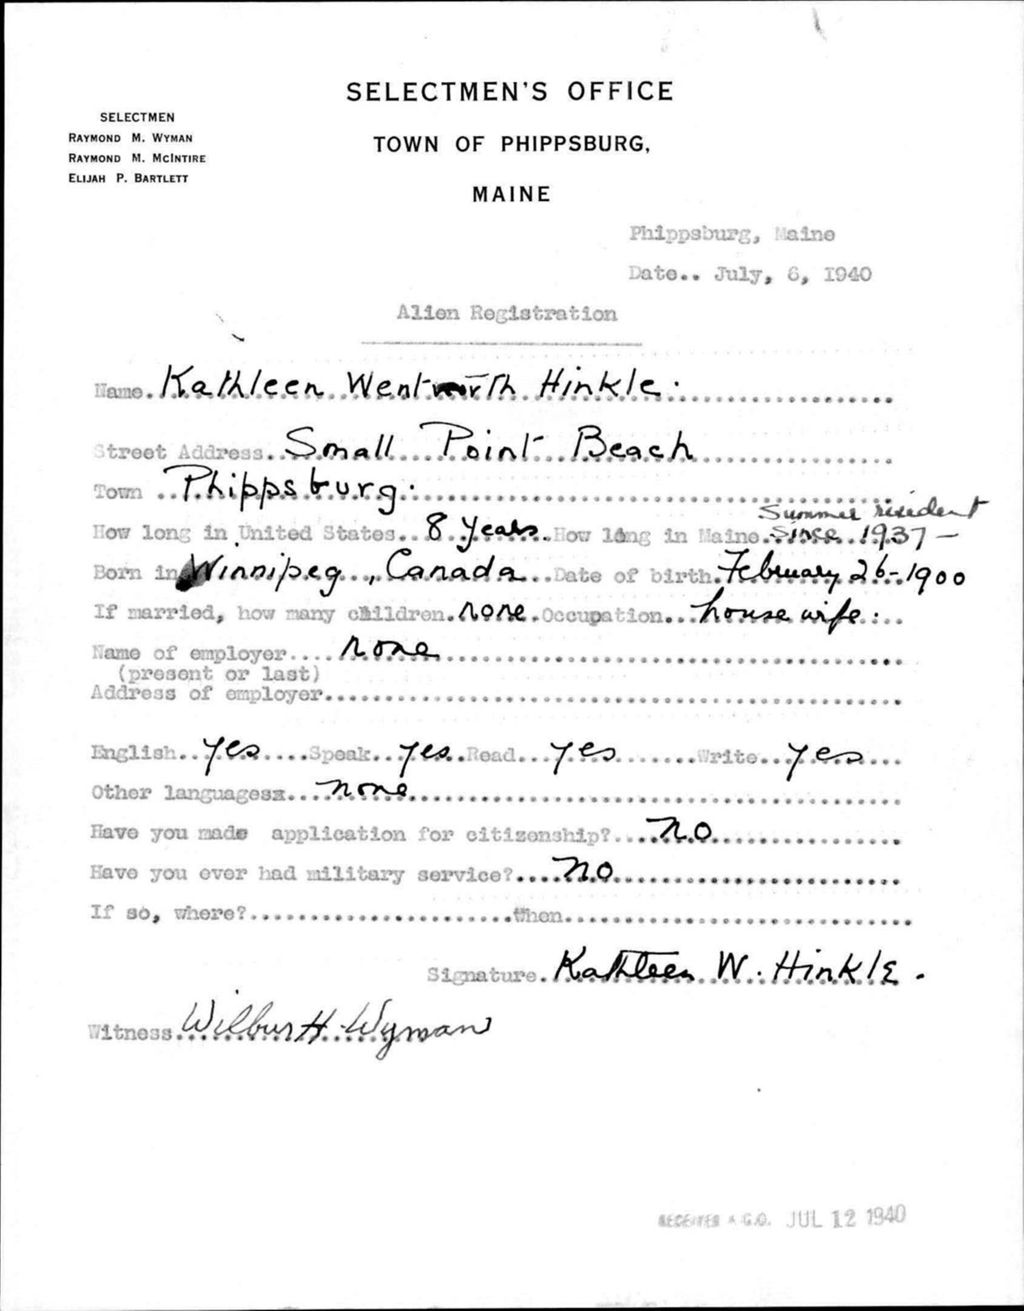 SELECTMEN'S OFFICE
TOWN OF PHIPPSBURG,
MAINE
SELECTMEN
RAYMOND M. WYMAN
RAYMOND M. MCINTIRE
ELIJAH P. BARTLETT
Phippsburg, Maine
Date.. July, 6, 1940
Alien Registration
Name. Kathleen Wentworth Hinkle.
Street Address. Small Point Beach
Town Phippsburg.
Summer resident
How long in United States. 8 years. How long in Maine. since 1937 —
Born in Winnipeg, Canada. Date of birth. February 26 - 1900
If married, how many children. none. Occupation. housewife.
Name of employer. none
(present or last)
Address of employer
English. yes Speak. yes Read. yes Write. yes
Other languagesx. none
Have you made application for citizenship? no
Have you ever had military service? no
If so, where? When
Signature. Kathleen W. Hinkle.
Witness. Wilbur H. Wyman
RECEIVED A.G.O. JUL 12 1940